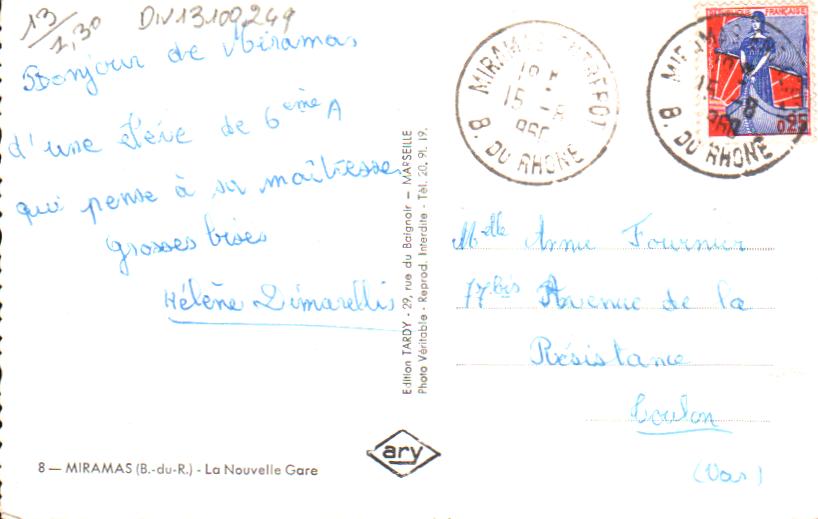 13/1,30
DIV13100249
Bonjour de Miramas
d'une élève de 6ème A
qui pense à sa maîtresse
Grosses bises
Hélène
8 — MIRAMAS (B.-du-R.) - La Nouvelle Gare
Edition TARDY - 29, rue du Baignoir - MARSEILLE
Photo Véritable - Reprod. Interdite - Tél. 20. 91. 19.
ary
MIRAMAS
15 -8
B. DU RHONE
RÉPUBLIQUE FRANÇAISE
0,25
15 -8
B. DU RHONE
Melle Anne Fournier
17bis Avenue de la
Résistance
Toulon
(Var)